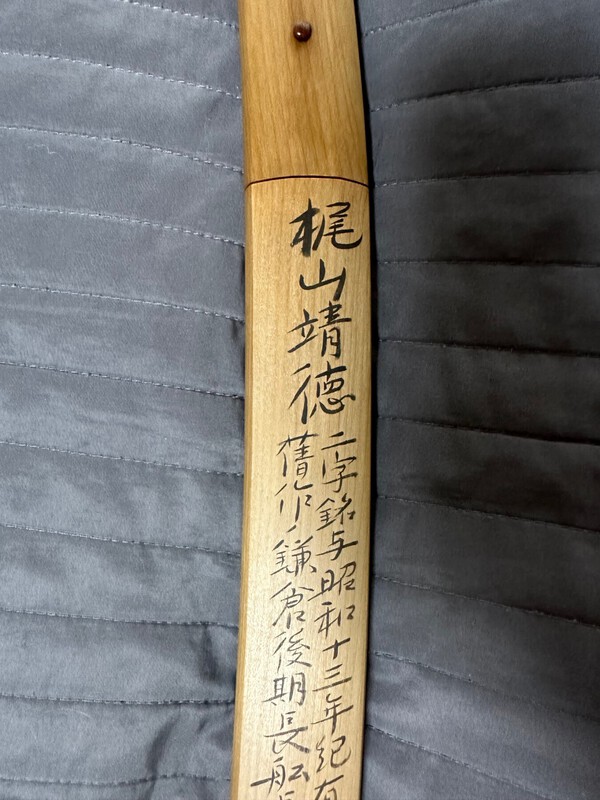 梶山靖徳
二字銘与昭和十三年紀有
作鎌倉後期長船